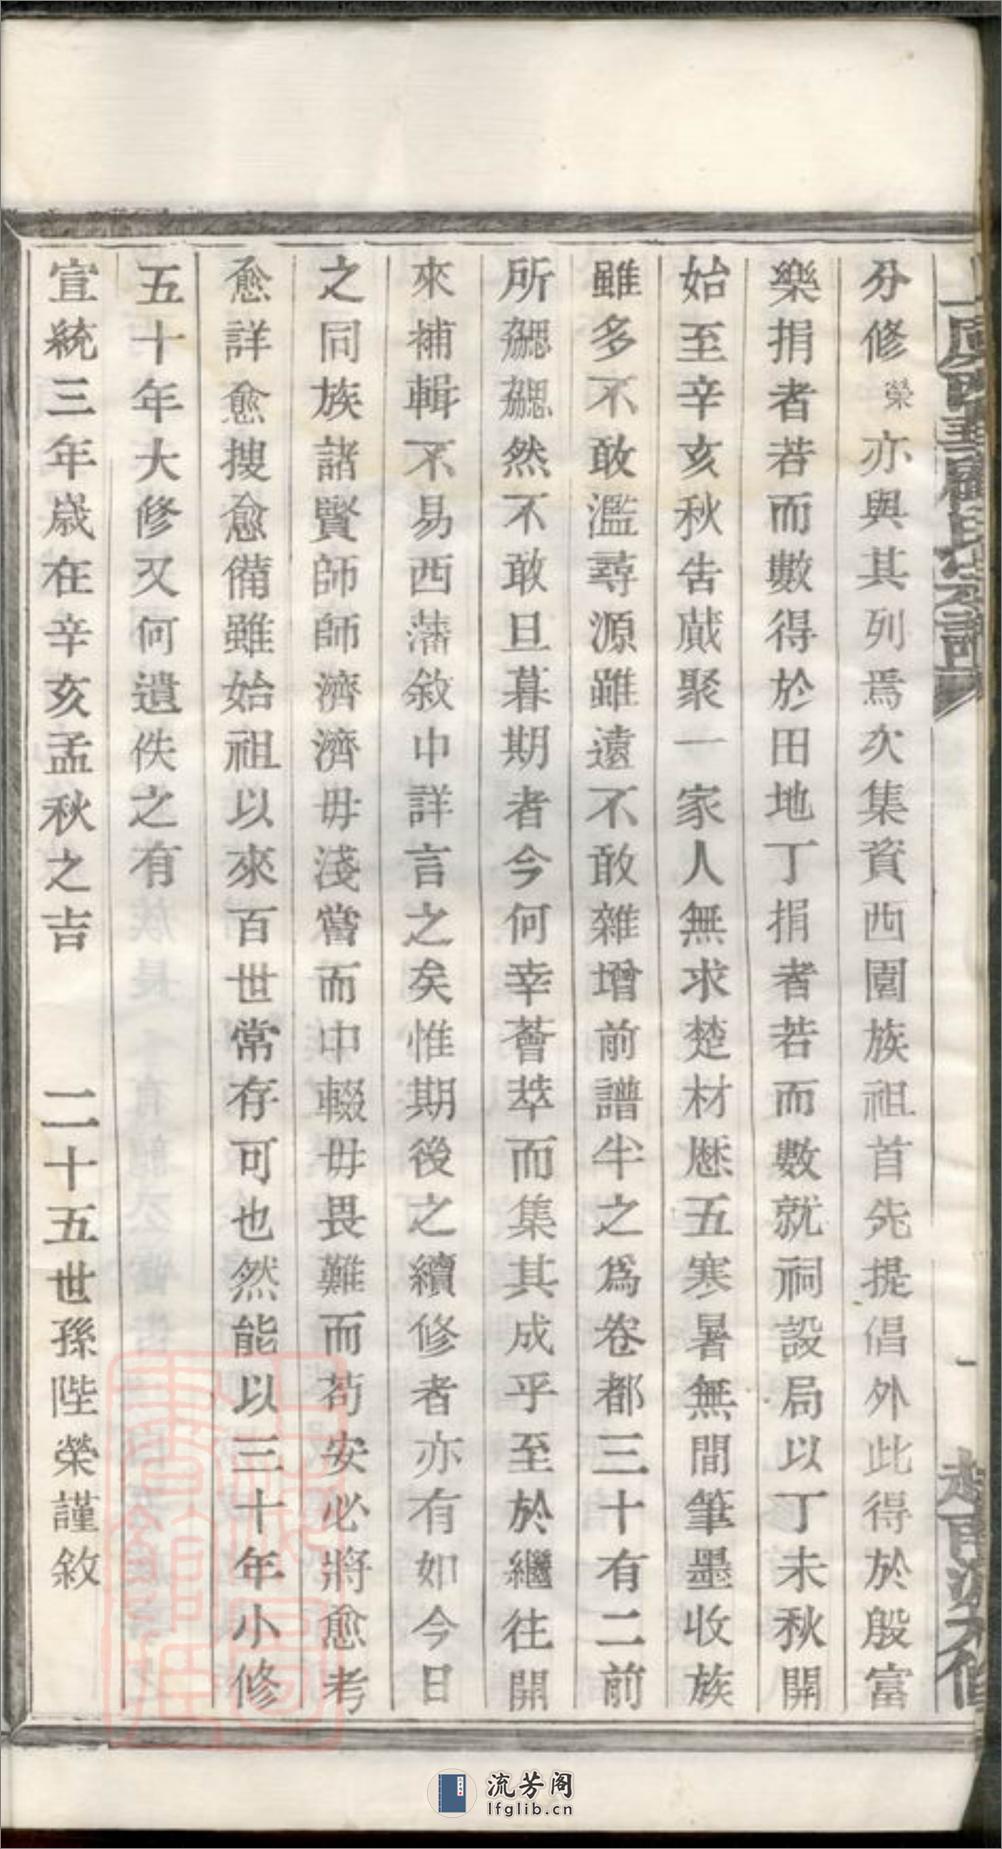 分修榮亦與其列焉次集資西園族祖首先提倡外此得於殷富
樂捐者若而數得於田地丁捐者若而數就祠設局以丁未秋開
始至辛亥秋告蕆聚一家人無求楚材歷五寒暑無間筆墨收族
雖多不敢濫尋源雖遠不敢雜增前譜半之爲卷都三十有二前
所勰勰然不敢旦暮期者今何幸薈萃而集其成乎至於繼往開
來補輯不易西藩敘中詳言之矣惟期後之續修者亦有如今日
之同族諸賢師師濟濟毋淺嘗而中輟毋畏難而苟安必將愈考
愈詳愈搜愈備雖始祖以來百世常存可也然能以三十年小修
五十年大修又何遺佚之有
宣統三年歲在辛亥孟秋之吉 二十五世孫陛榮謹敘
流芳阁
lfglib.cn